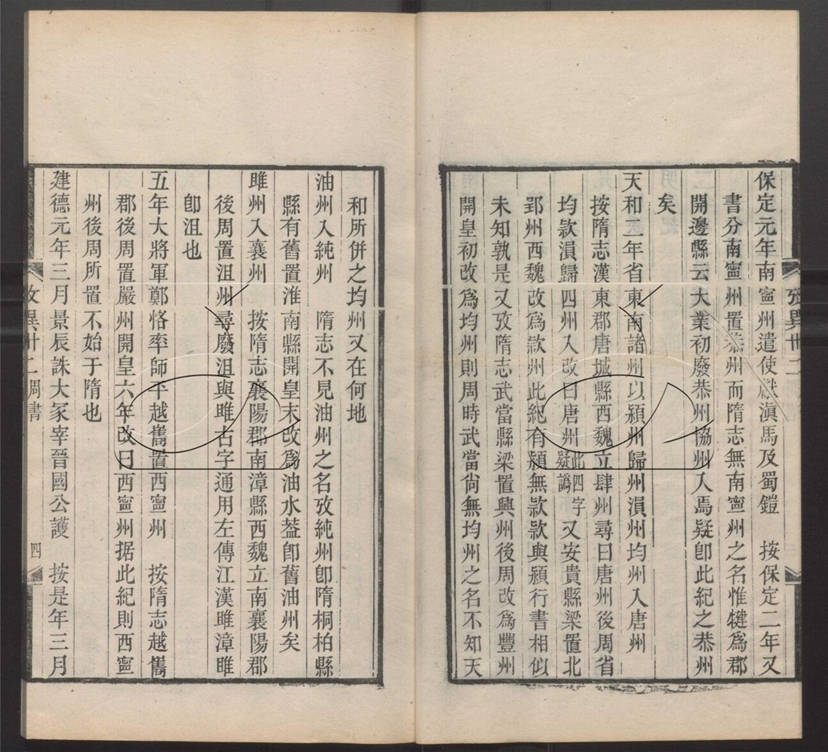 保定元年南寧州遣使獻滇馬及蜀鎧　按保定二年又
書分南寧州置恭州而隋志無南寧州之名惟犍爲郡
開邊縣云大業初廢恭州協州入焉疑卽此紀之恭州
矣
天和二年省東南諸州以潁州歸州溳州均州入唐州
按隋志漢東郡唐城縣西魏立肆州尋曰唐州後周省
均款溳歸四州入改曰唐州此四字疑譌又安貴縣梁置北
郢州西魏改爲款州此紀有潁無款款與潁行書相似
未知孰是又攷隋志武當縣梁置興州後周改爲豐州
開皇初改爲均州則周時武當尚無均州之名不知天
攷異卅二
和所併之均州又在何地
油州入純州　隋志不見油州之名攷純州卽隋桐柏縣
縣有舊置淮南縣開皇末改爲油水葢卽舊油州矣
雎州入襄州　按隋志襄陽郡南漳縣西魏立南襄陽郡
後周置沮州尋廢沮與雎古字通用左傳江漢雎漳雎
卽沮也
五年大將軍鄭恪率師平越巂置西寧州　按隋志越巂
郡後周置嚴州開皇六年改曰西寧州据此紀則西寧
州後周所置不始于隋也
建德元年三月景辰誅大冢宰晉國公護　按是年三月
攷異卅二　周書　四